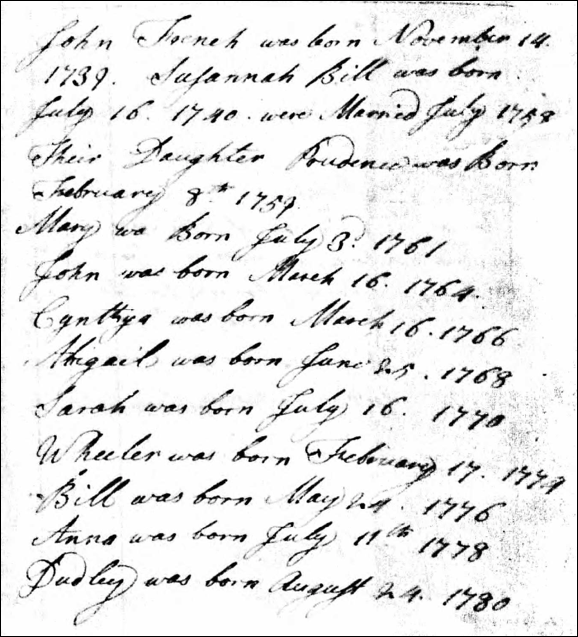 John French was born November 14.
1739. Susannah Bill was born
July 16. 1740. were Married July 1758
Their Daughter Prudence was Born
February 8th 1759.
Mary wa Born July 3d 1761
John was born March 16. 1764.
Cynthya was born March 16. 1766
Abigail was born June 25. 1768
Sarah was born July 16. 1770
Wheeler was born February 17. 1774
Bill was born May 24. 1776
Anna was born July 11th 1778
Dudley was born August 24. 1780